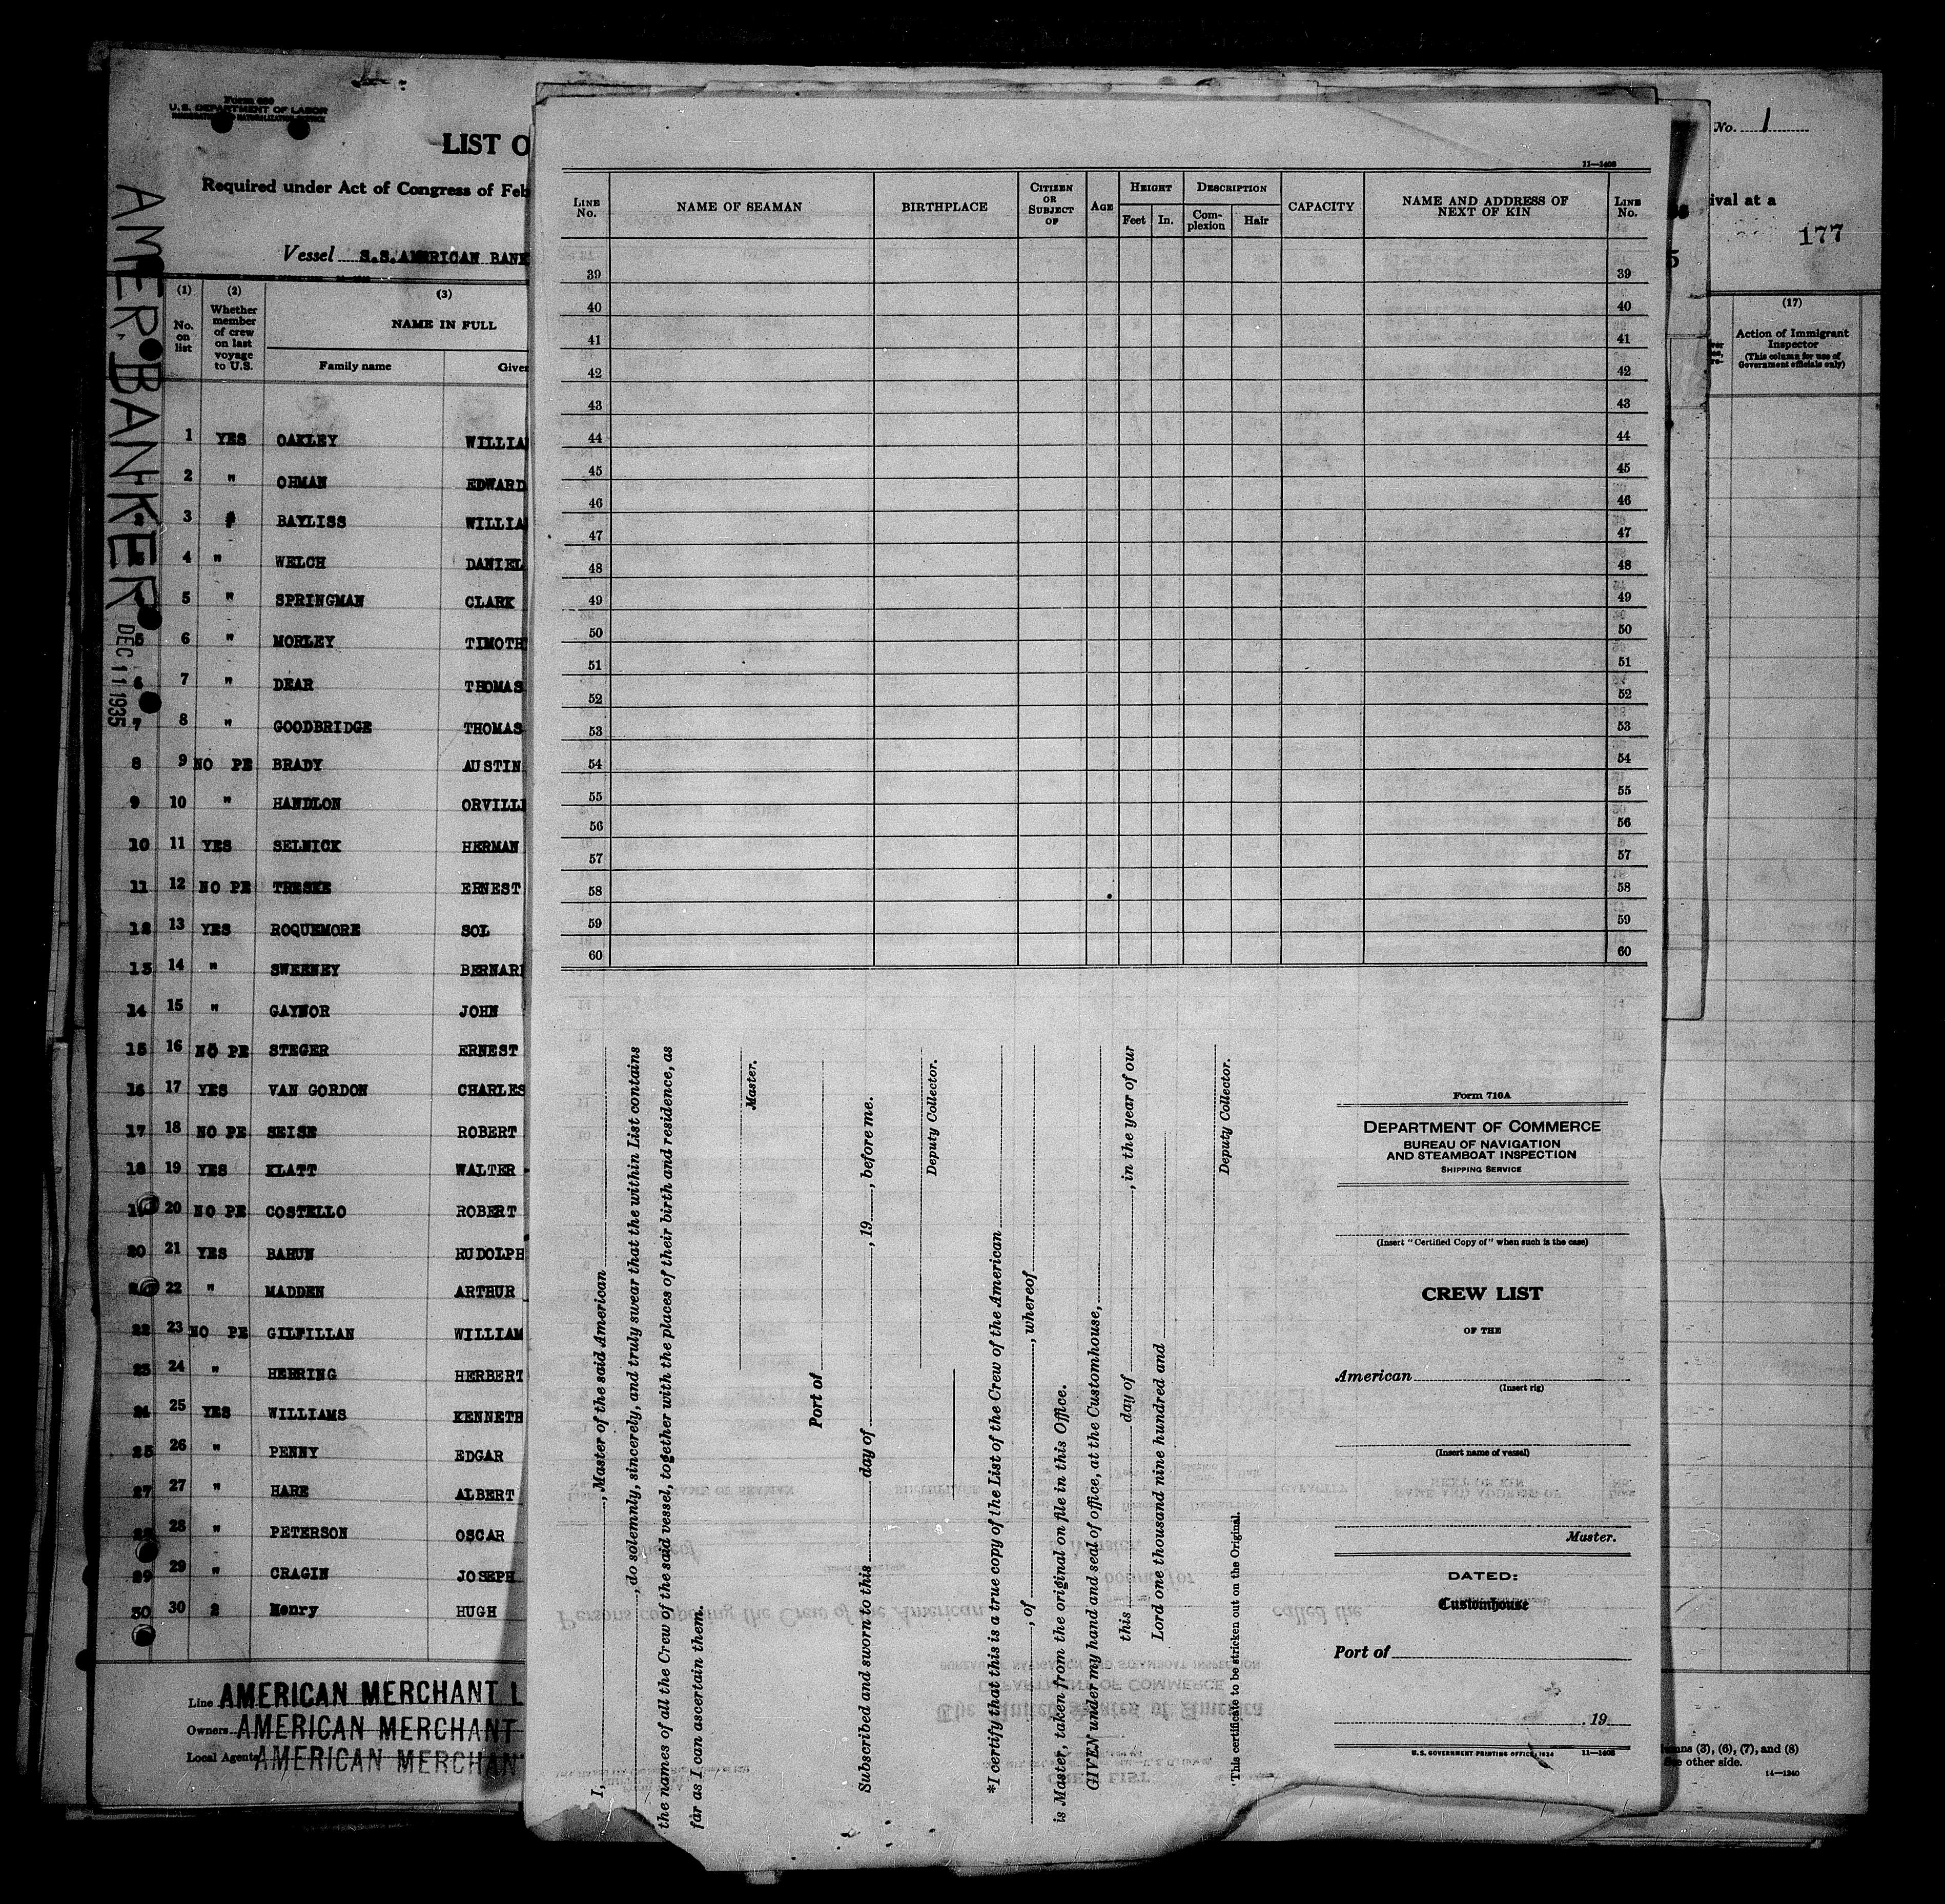 Form 689
U. S. DEPARTMENT OF LABOR
IMMIGRATION AND NATURALIZATION SERVICE
LIST O
Required under Act of Congress of Feb
Vessel S.S. AMERICAN BANK
AMER. BANKER
DEC 11 1935
(1) (2) (3)
No. on list
Whether member of crew on last voyage to U.S.
NAME IN FULL
Family name Given
1 YES OAKLEY WILLIA
2 " OHMAN EDWARD
3 BAYLISS WILLIA
4 " WELCH DANIEL
5 " SPRINGMAN CLARK
5 6 " MORLEY TIMOTH
6 7 " DEAR THOMAS
7 8 " GOODBRIDGE THOMAS
8 9 NO PE BRADY AUSTIN
9 10 " HANDLON ORVILL
10 11 YES SELNICK HERMAN
11 12 NO PE TRESKE ERNEST
12 13 YES ROQUEMORE SOL
13 14 " SWEENEY BERNAR
14 15 " GAYNOR JOHN
15 16 NO PE STEGER ERNEST
16 17 YES VAN GORDON CHARLES
17 18 NO PE SEISE ROBERT
18 19 YES KLATT WALTER
19 20 NO PE COSTELLO ROBERT
20 21 YES BAHUN RUDOLPH
22 " MADDEN ARTHUR
22 23 NO PE GILFILLAN WILLIAM
23 24 " HERRING HERBERT
24 25 YES WILLIAMS KENNETH
25 26 " PENNY EDGAR
27 27 " HARE ALBERT
28 28 " PETERSON OSCAR
29 29 " CRAGIN JOSEPH
30 30 2 Henry HUGH
Line AMERICAN MERCHANT L
Owners AMERICAN MERCHANT
Local Agents AMERICAN MERCHAN
11—1408
LINE No. NAME OF SEAMAN BIRTHPLACE CITIZEN OR SUBJECT OF AGE HEIGHT Feet In. DESCRIPTION Complexion Hair CAPACITY NAME AND ADDRESS OF NEXT OF KIN LINE No.
39 39
40 40
41 41
42 42
43 43
44 44
45 45
46 46
47 47
48 48
49 49
50 50
51 51
52 52
53 53
54 54
55 55
56 56
57 57
58 58
59 59
60 60
I, , Master of the said American
, do solemnly, sincerely, and truly swear that the within List contains
the names of all the Crew of the said vessel, together with the places of their birth and residence, as
far as I can ascertain them.
Master.
Port of
Subscribed and sworn to this day of , 19 , before me.
Deputy Collector.
*I certify that this is a true copy of the List of the Crew of the American
, of , whereof
is Master, taken from the original on file in this Office.
GIVEN under my hand and seal of office, at the Customhouse,
this day of , in the year of our
Lord one thousand nine hundred and
Deputy Collector.
*This certificate to be stricken out on the Original.
Form 710A
DEPARTMENT OF COMMERCE
BUREAU OF NAVIGATION
AND STEAMBOAT INSPECTION
SHIPPING SERVICE
(Insert "Certified Copy of" when such is the case)
CREW LIST
OF THE
American
(Insert rig)
(Insert name of vessel)
Master.
DATED:
Customhouse
Port of
, 19
U. S. GOVERNMENT PRINTING OFFICE: 1934 11—1408
No. 1
ival at a
177
5
(17)
Action of Immigrant Inspector
(This column for use of Government officials only)
mns (3), (6), (7), and (8)
See other side.
14—1240